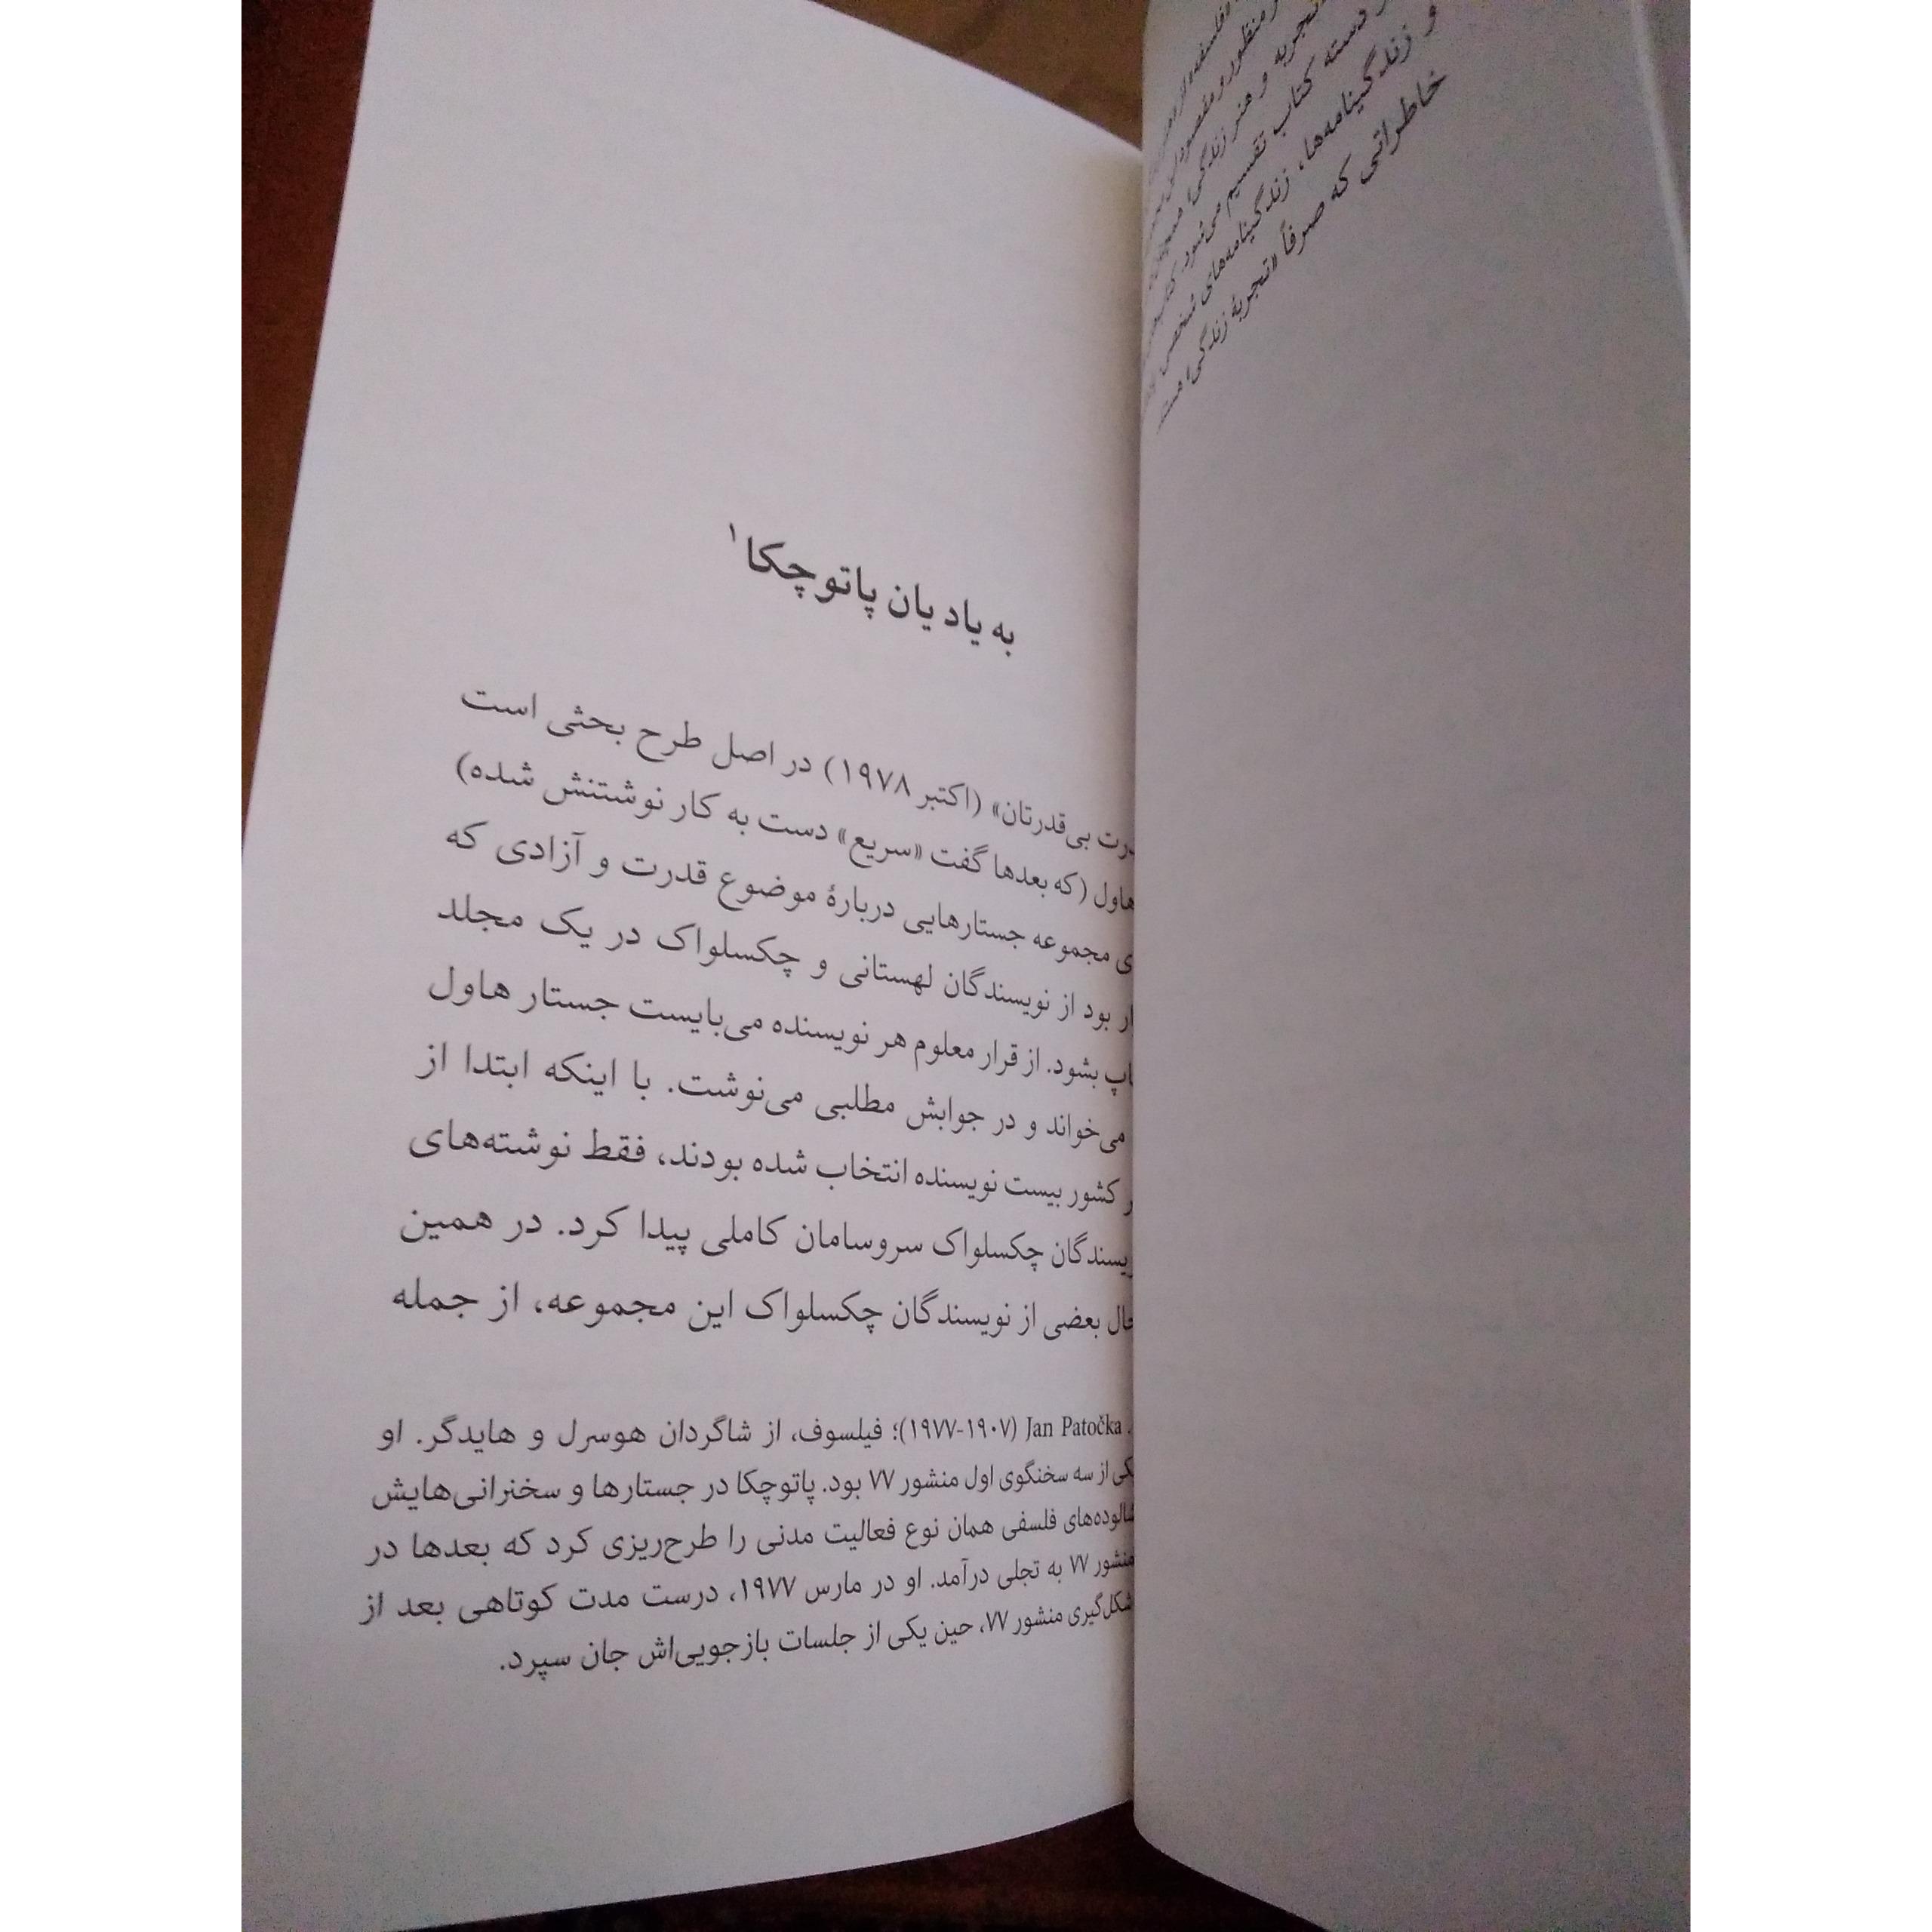 تجربه و هنر زندگی
دسته کتاب تقسیم می‌شود
و زندگینامه‌ها، زندگینامه‌های شخصی
خاطراتی که صرفاً «تجربهٔ زندگی»
به یاد یان پاتوچکا۱
بی‌قدرتان» (اکتبر ۱۹۷۸) در اصل طرح بحثی است
هاول (که بعدها گفت «سریع» دست به کار نوشتنش شده)
مجموعه جستارهایی دربارهٔ موضوع قدرت و آزادی که
بود از نویسندگان لهستانی و چکسلواک در یک مجلد
بشود. از قرار معلوم هر نویسنده می‌بایست جستار هاول
می‌خواند و در جوابش مطلبی می‌نوشت. با اینکه ابتدا از
کشور بیست نویسنده انتخاب شده بودند، فقط نوشته‌های
یسندگان چکسلواک سروسامان کاملی پیدا کرد. در همین
حال بعضی از نویسندگان چکسلواک این مجموعه، از جمله
. Jan Patočka (۱۹۰۷-۱۹۷۷)؛ فیلسوف، از شاگردان هوسرل و هایدگر. او
یکی از سه سخنگوی اول منشور ۷۷ بود. پاتوچکا در جستارها و سخنرانی‌هایش
شالوده‌های فلسفی همان نوع فعالیت مدنی را طرح‌ریزی کرد که بعدها در
منشور ۷۷ به تجلی درآمد. او در مارس ۱۹۷۷، درست مدت کوتاهی بعد از
شکل‌گیری منشور ۷۷، حین یکی از جلسات بازجویی‌اش جان سپرد.